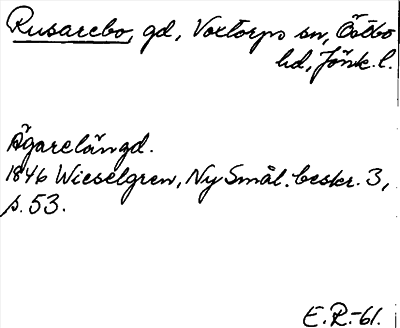 Rusarebo, gd, Voxtorps sn, Östbo
hd, Jönk. l.
Ägarelängd.
1846 Wieselgren, Ny Smål. beskr. 3,
s. 53.
E.R.-61.